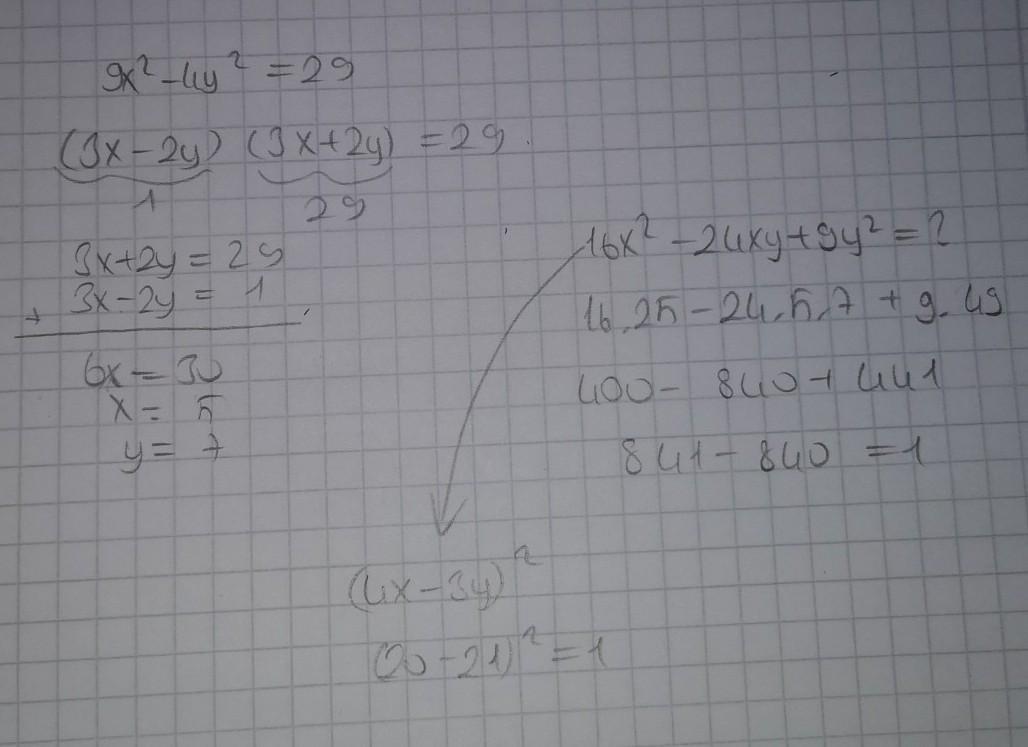 9x² - 4y² = 29
(3x - 2y) (3x + 2y) = 29
1 29
3x + 2y = 29
+ 3x - 2y = 1
6x = 30
x = 5
y = 7
16x² - 24xy + 9y² = ?
16.25 - 24.5.7 + 9.49
400 - 840 + 441
841 - 840 = 1
(4x - 3y)²
(20 - 21)² = 1